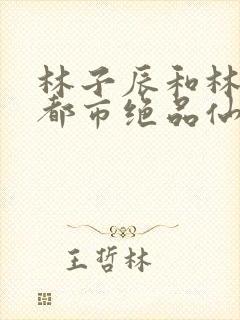 林子辰和林
都市绝品仙
王哲林